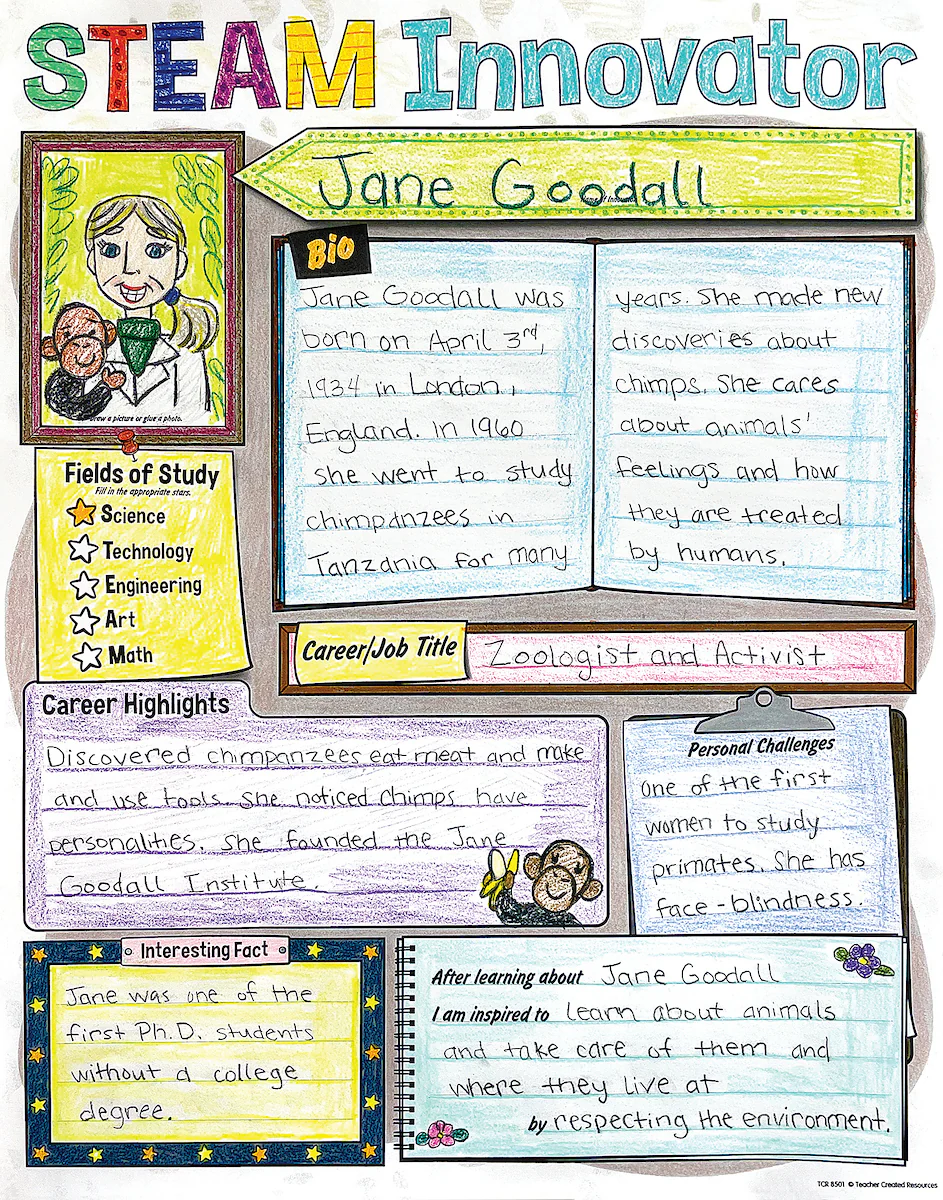 STEAM Innovator
Jane Goodall
Draw a picture or glue a photo.
Bio
Jane Goodall was
born on April 3rd,
1934 in London,
England. In 1960
she went to study
chimpanzees in
Tanzania for many
years. She made new
discoveries about
chimps. She cares
about animals'
feelings and how
they are treated
by humans.
Fields of Study
Fill in the appropriate stars.
Science
Technology
Engineering
Art
Math
Career/Job Title
Zoologist and Activist
Career Highlights
Discovered chimpanzees eat meat and make
and use tools. She noticed Chimps have
personalities. She founded the Jane
Goodall Institute.
Personal Challenges
One of the first
women to study
primates. She has
face-blindness.
Interesting Fact
Jane was one of the
first Ph.D. students
without a college
degree.
After learning about Jane Goodall
I am inspired to learn about animals
and take care of them and
where they live at
by respecting the environment.
TCR 8501 © Teacher Created Resources